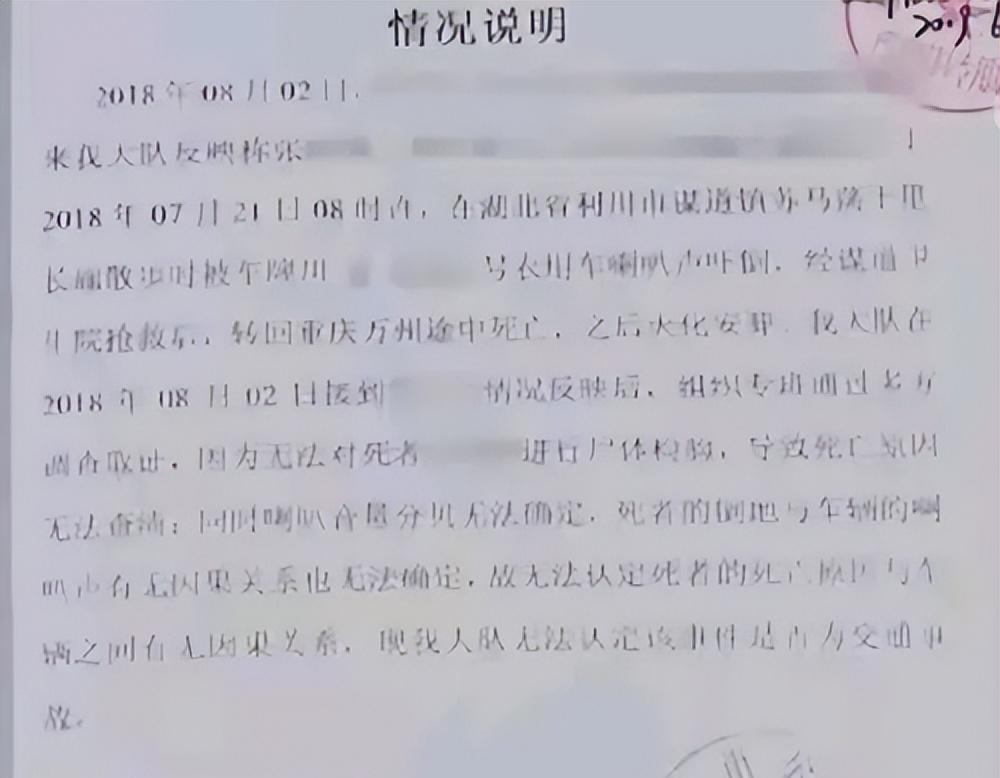 情况说明
2018年08月02日,
来我大队反映称张
2018年07月21日08时许,在湖北省利川市谋道镇苏马荡十里
长廊散步时被车牌川 号农用车喇叭声吓倒,经谋道卫
生院抢救后,转回重庆万州途中死亡,之后火化安葬,我大队在
2018年08月02日接到 情况反映后,组织专班通过多方
调查取证,因为无法对死者 进行尸体检验,导致死亡原因
无法查清;同时喇叭音量分贝无法确定,死者的倒地与车辆的喇
叭声有无因果关系也无法确定,故无法认定死者的死亡原因与车
辆之间有无因果关系,现我大队无法认定该事件是否为交通事
故。